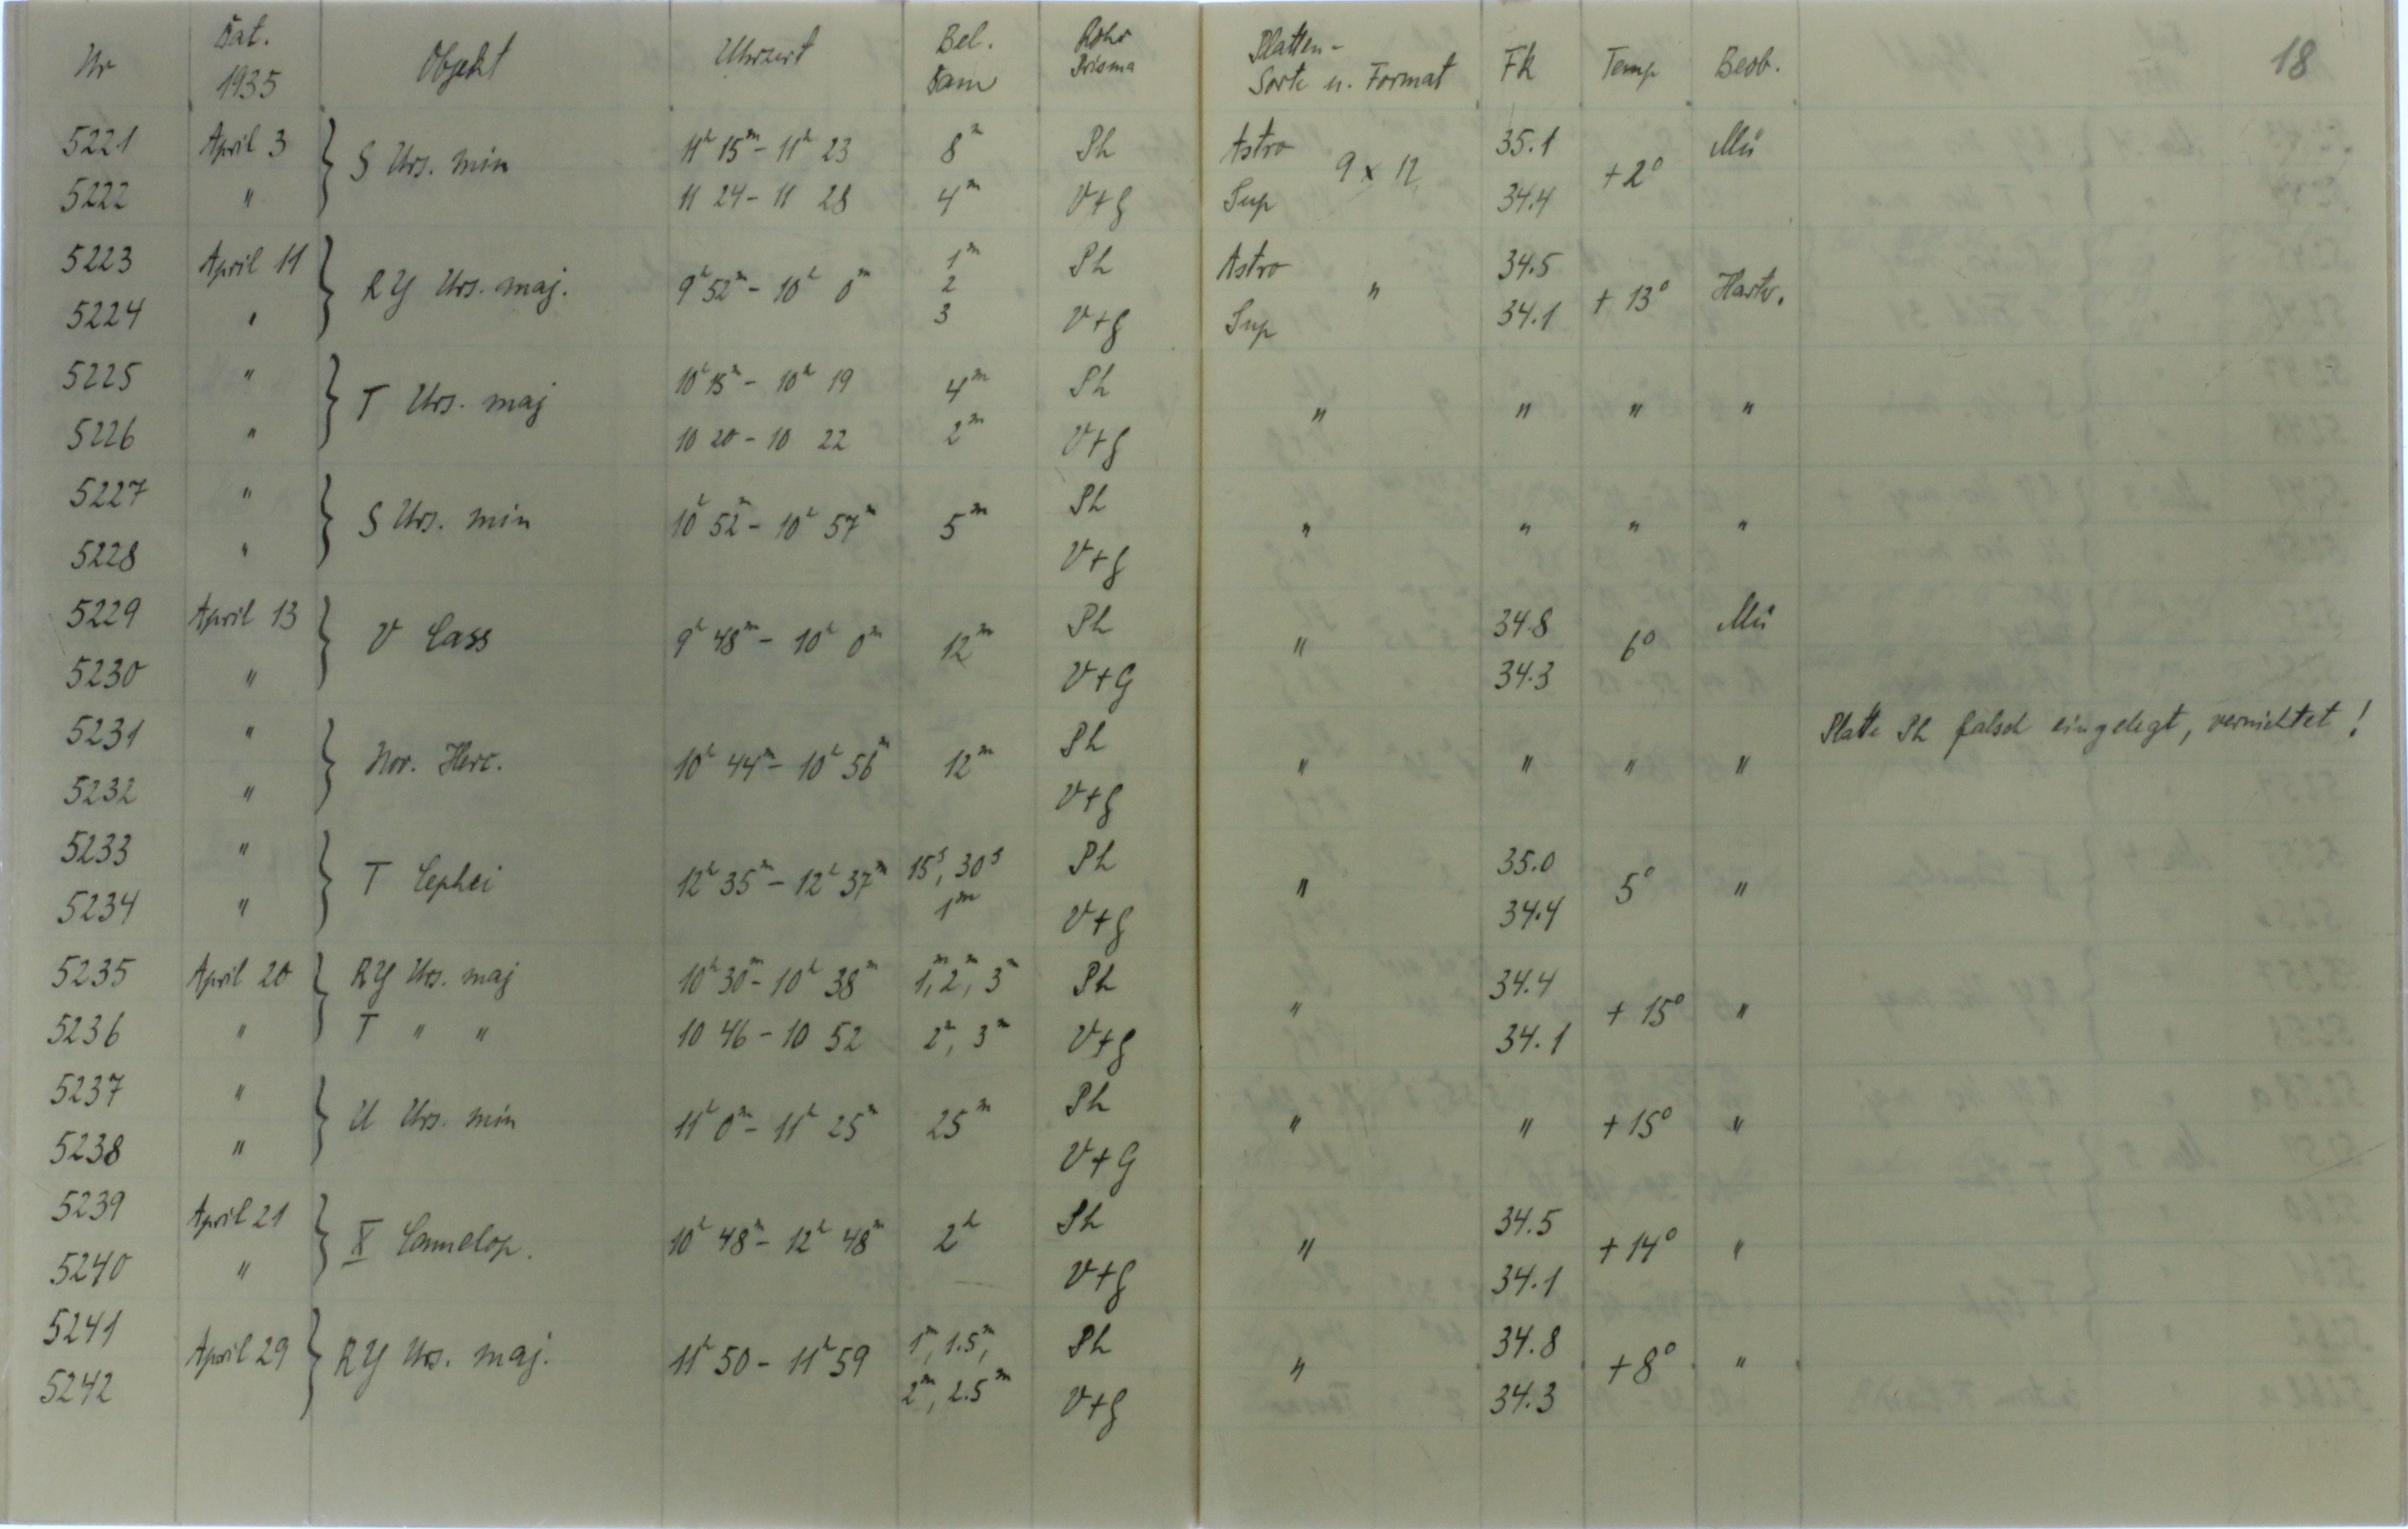 Nr Dat. 1935 Objekt Uhrzeit Bel. Dauer Rohr Prisma Platten-Sorte u. Format Fk Temp Beob. 18
5221 April 3 } S Urs. min 11h 15m - 11h 23 8m Ph Astro 9 x 12 35.1 +2° Mü
5222 " 11 24 - 11 28 4m V+g Sup 34.4
5223 April 11 } RY Urs. maj. 9h 52m - 10h 0m 1m 2 3 Ph Astro " 34.5 + 13° Hartw.
5224 " V+g Sup 34.1
5225 " } T Urs. maj 10h 15m - 10h 19 4m Ph " " " "
5226 " 10 20 - 10 22 2m V+g
5227 " } S Urs. min 10h 52m - 10h 57m 5m Ph " " " "
5228 " V+g
5229 April 13 } V Cass 9h 48m - 10h 0m 12m Ph " 34.8 6° Mü
5230 " V+G 34.3
5231 " } Nov. Herc. 10h 44m - 10h 56m 12m Ph " " " " Platte Ph falsch eingelegt, vernichtet!
5232 " V+g
5233 " } T Cephei 12h 35m - 12h 37m 15s, 30s 1m Ph " 35.0 5° "
5234 " V+g 34.4
5235 April 20 } RY Urs. maj 10h 30m - 10h 38m 1m, 2m, 3m Ph " 34.4 + 15° "
5236 " T " " 10 46 - 10 52 2m, 3m V+g 34.1
5237 " } U Urs. min 11h 0m - 11h 25m 25m Ph " " + 15° "
5238 " V+G
5239 April 21 } X Camelop. 10h 48m - 12h 48m 2h Ph " 34.5 + 14° "
5240 " V+g 34.1
5241 April 29 } RY Urs. maj. 11h 50 - 11h 59 1m, 1.5m, 2m, 2.5m Ph " 34.8 +8° "
5242 V+g 34.3